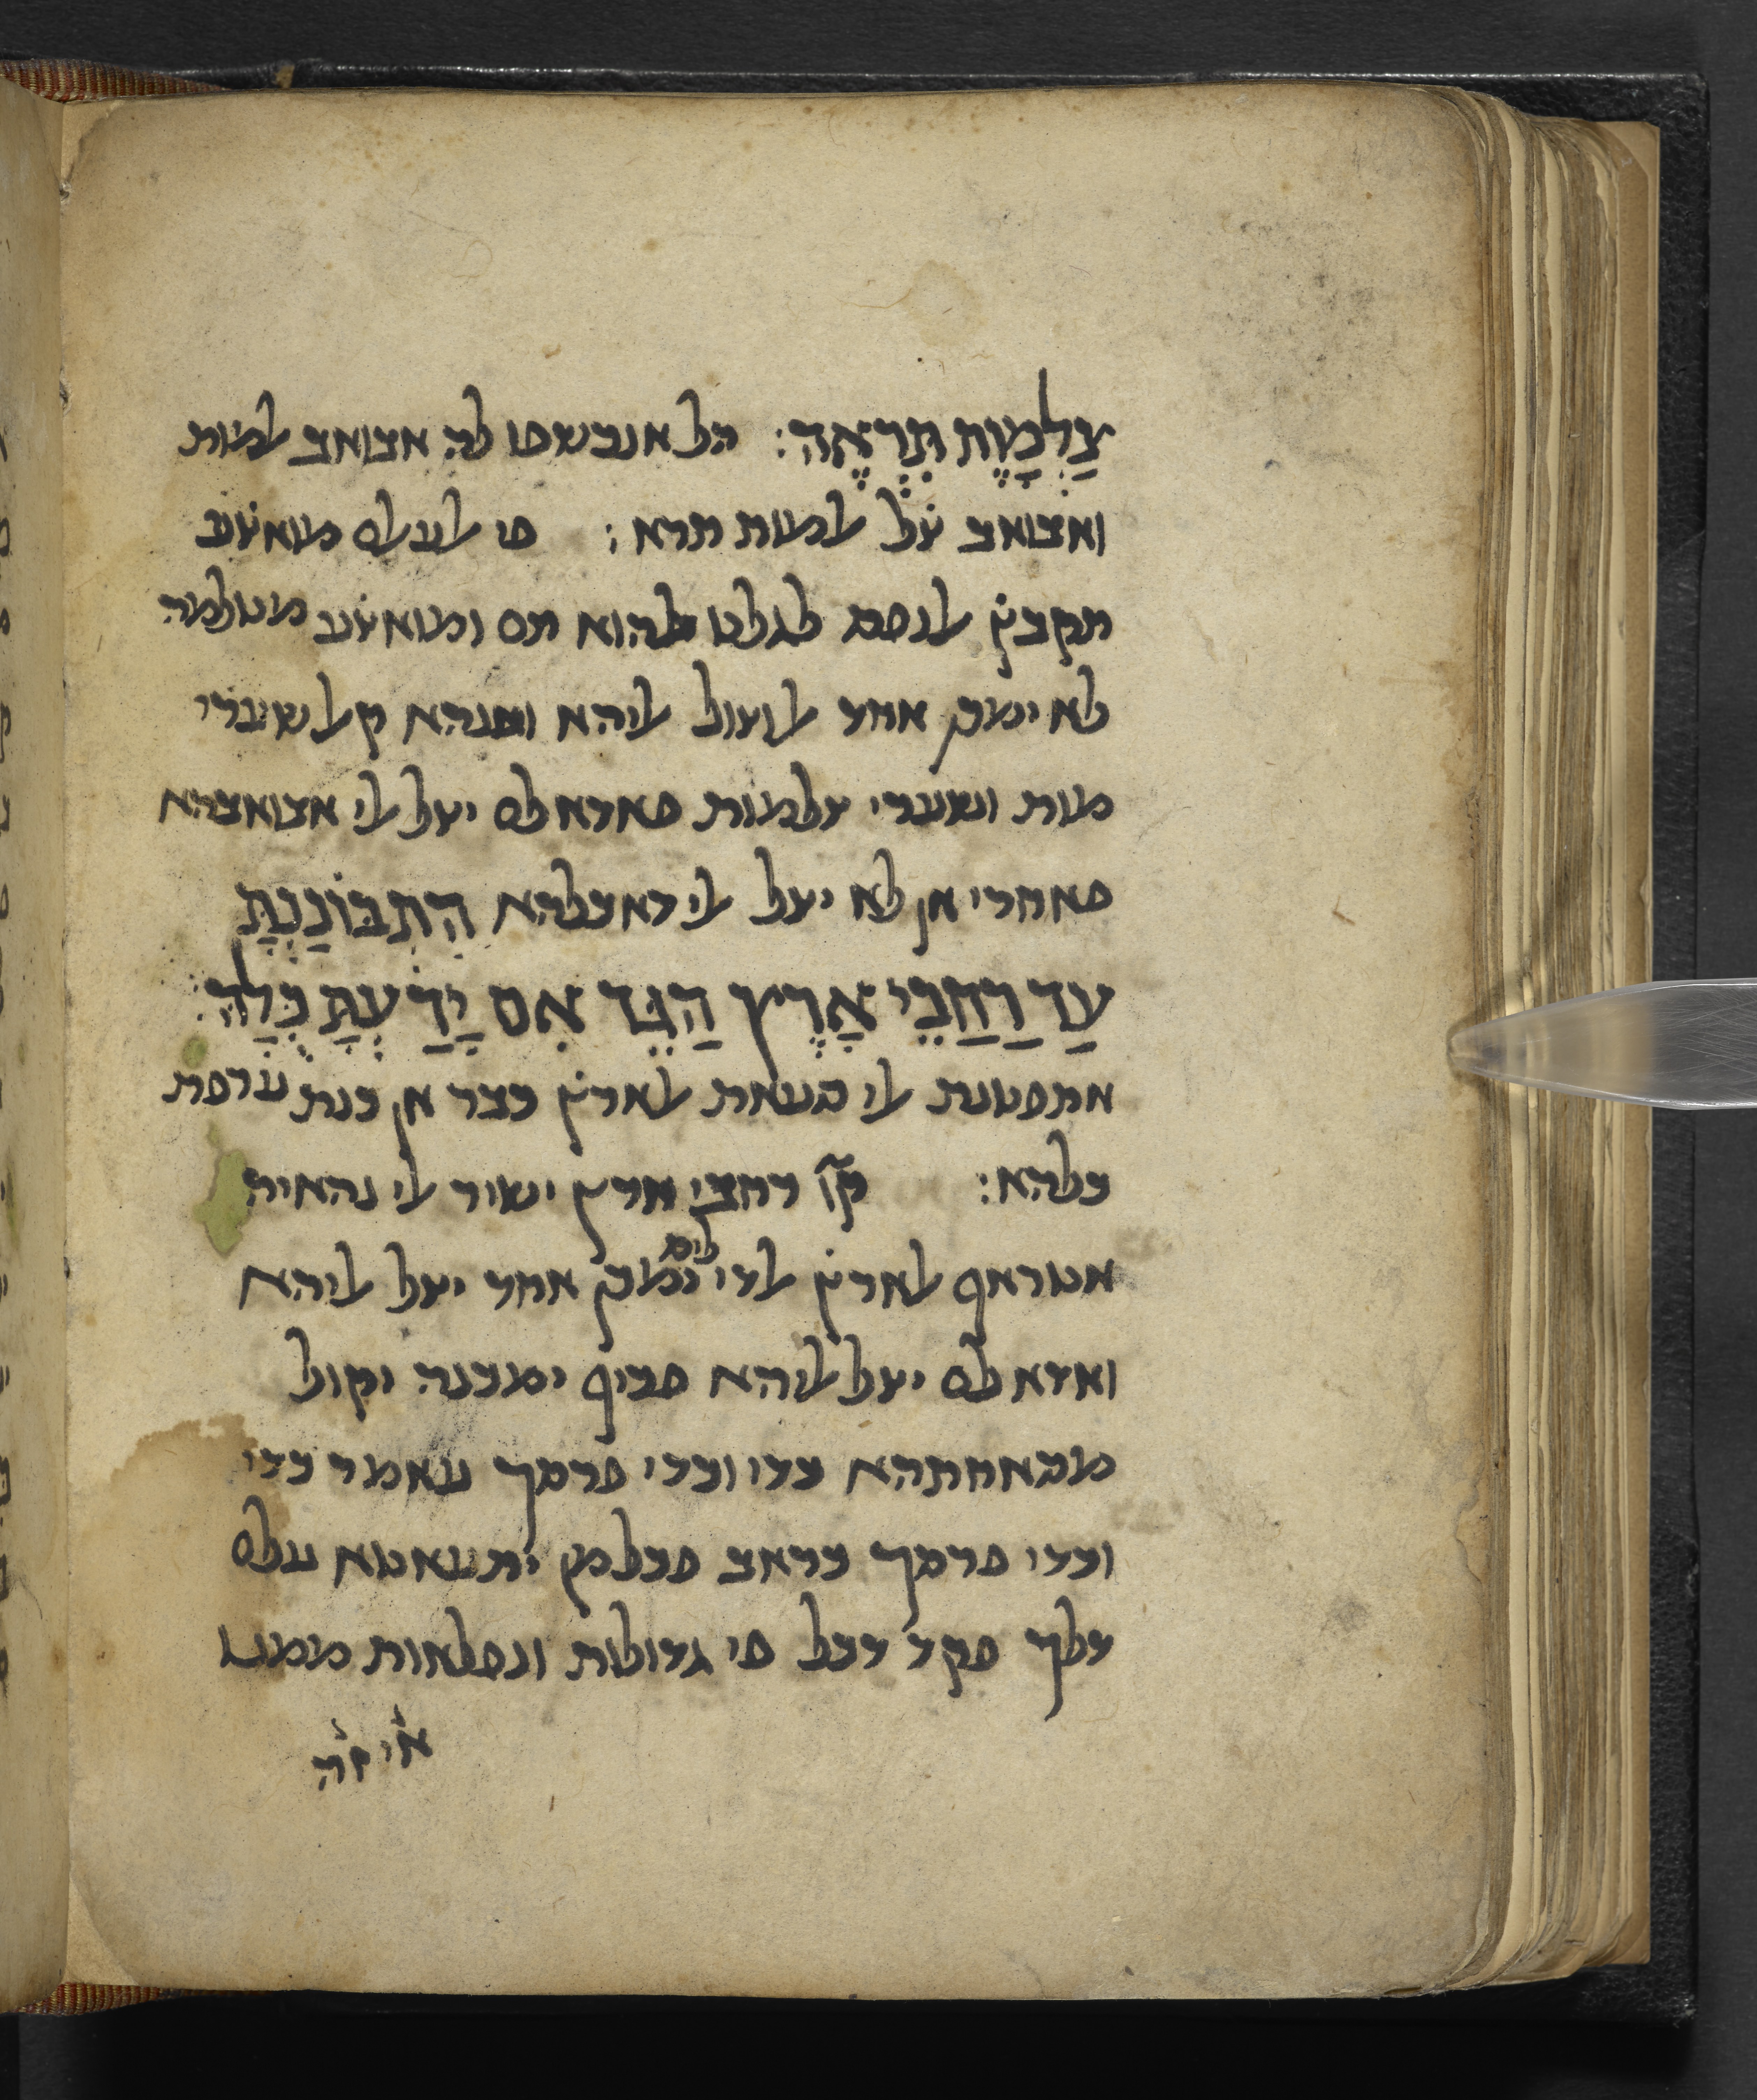 צַלְמָוֶת תִּרְאֶה: הל אנכשפו לך אבואב למות
ואבואב ט̇ל למות תרא: פי לעלם מואצ̇ע
תקבץ̇ לנפס לגלט̇ להוא תם ומואצ̇ע מט̇למה
לא ימכן אחד לוצול ליהא ומנהא קל שערי
מות ושערי צלמות פאדא לם יצל לי אבואבהא
פאחרי אן לא יצל לי דאכלהא הִתְבּוֹנַנְתָּ
עַד רַחֲבֵי אָרֶץ הַגֵּד אִם יָדַעְתָּ כֻלָּהּ:
אתפטנת לי וסעאת לארץ̇ כבר אן כנת ערפת
כלהא: קו̇ רחבי ארץ ישיר לי נהאית
אטראף לארץ̇ לדי לם ימכן אחד יצל ליהא
ואדא לם יצל ליהא פכיף ימכנה יקול
מסאחתהא כדי וכדי פרסך עאמר כדי
וכדי פרסך כראב פכלמן יתעאטא עלם
דלך פקד דכל פי גדולות ונפלאות ממנו
איזה